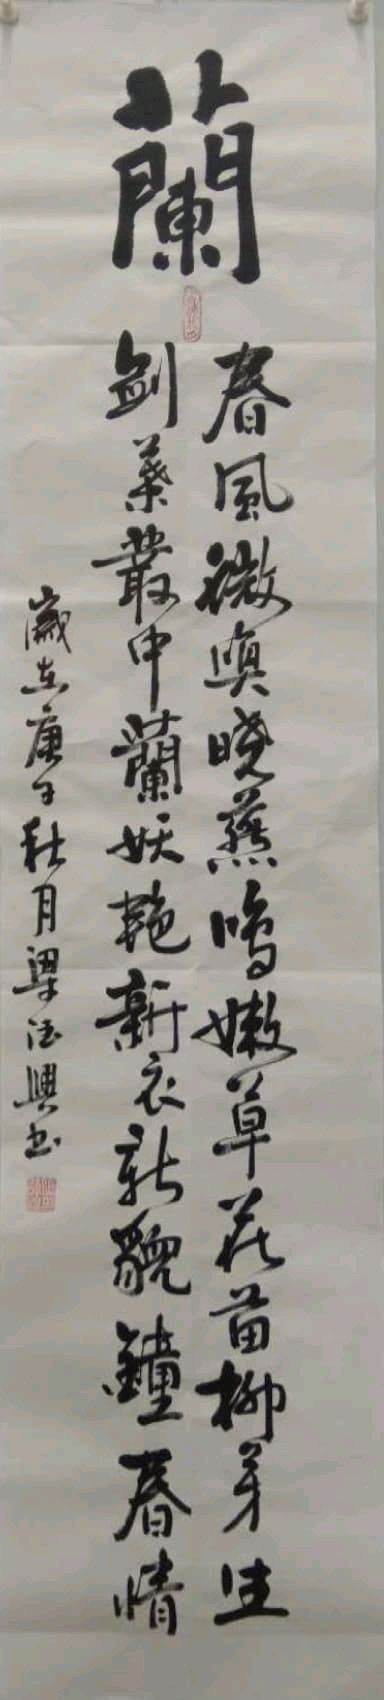 蘭
春風微奧曉燕鳴嫩草花苗柳芽生
劍葉叢中蘭妖艳新衣新貌鐘春情
歲在庚子秋月梁法興书